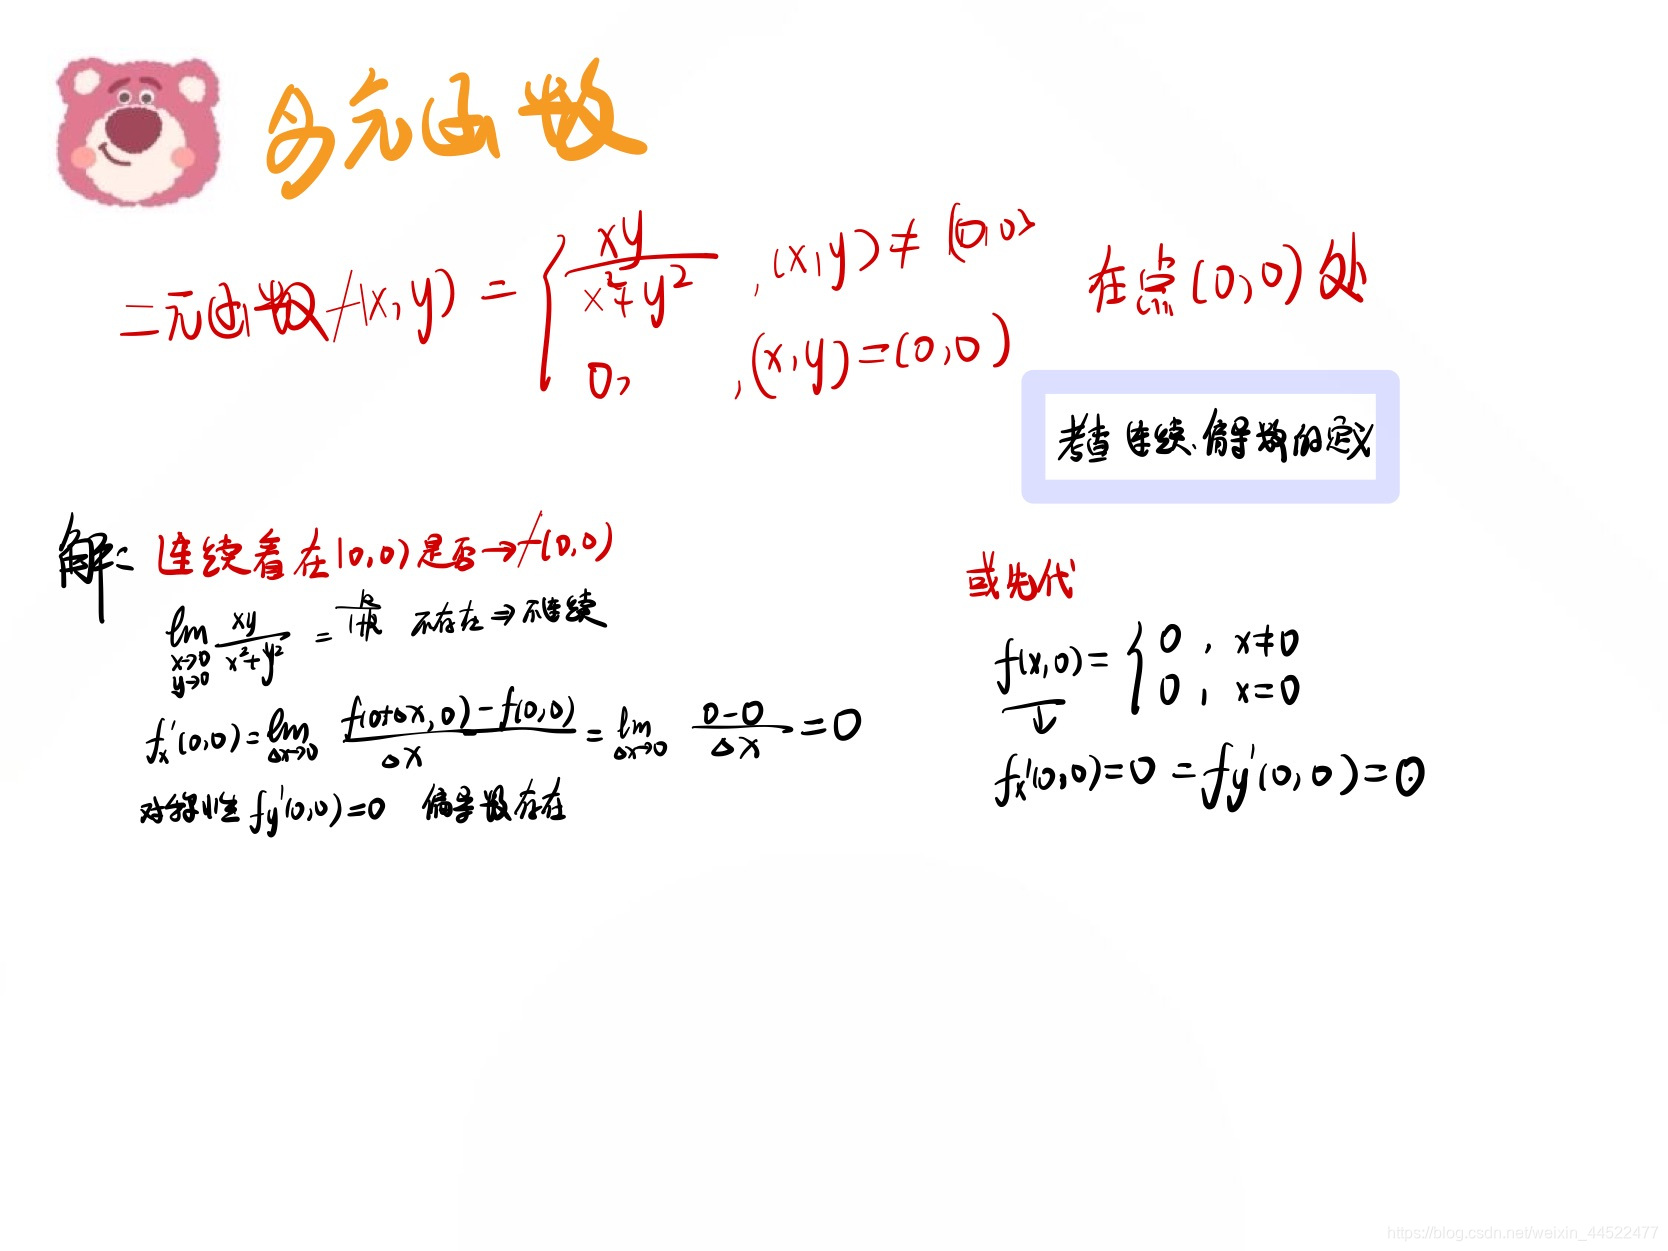 多元函数
二元函数 f(x,y) = { xy/(x²+y²) , (x,y) ≠ (0,0)
0, , (x,y) = (0,0)
在点(0,0)处
考查连续、偏导数的定义
解: 连续看在(0,0)是否→f(0,0)
lim x→0 y→0 xy/(x²+y²) = k/(1+k 不存在 ⇒ 不连续
fx'(0,0) = lim Δx→0 (f(0+Δx,0) - f(0,0))/Δx = lim Δx→0 (0-0)/Δx = 0
对称性 fy'(0,0) = 0 偏导数存在
或先代
f(x,0) = { 0 , x≠0
0 , x=0
↓
fx'(0,0) = 0 = fy'(0,0) = 0
https://blog.csdn.net/weixin_44522477